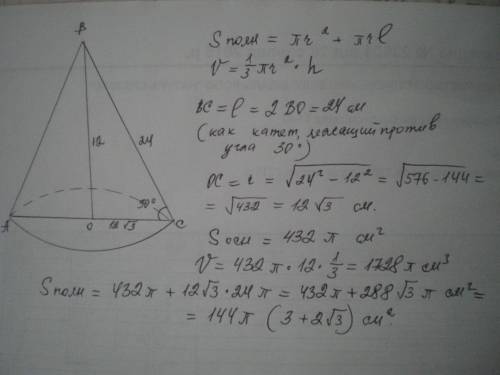 B
12
24
30°
A
O
12√3
C
Sполн = πr² + πrl
V = 1/3 πr² · h
BC = l = 2 BO = 24 см
(как катет, лежащий против
угла 30°)
OC = r = √24² - 12² = √576 - 144 =
= √432 = 12√3 см.
Sосн = 432 π см²
V = 432 π · 12 · 1/3 = 1728 π см³
Sполн = 432 π + 12√3 · 24 π = 432 π + 288√3 π см² =
= 144 π (3 + 2√3) см².